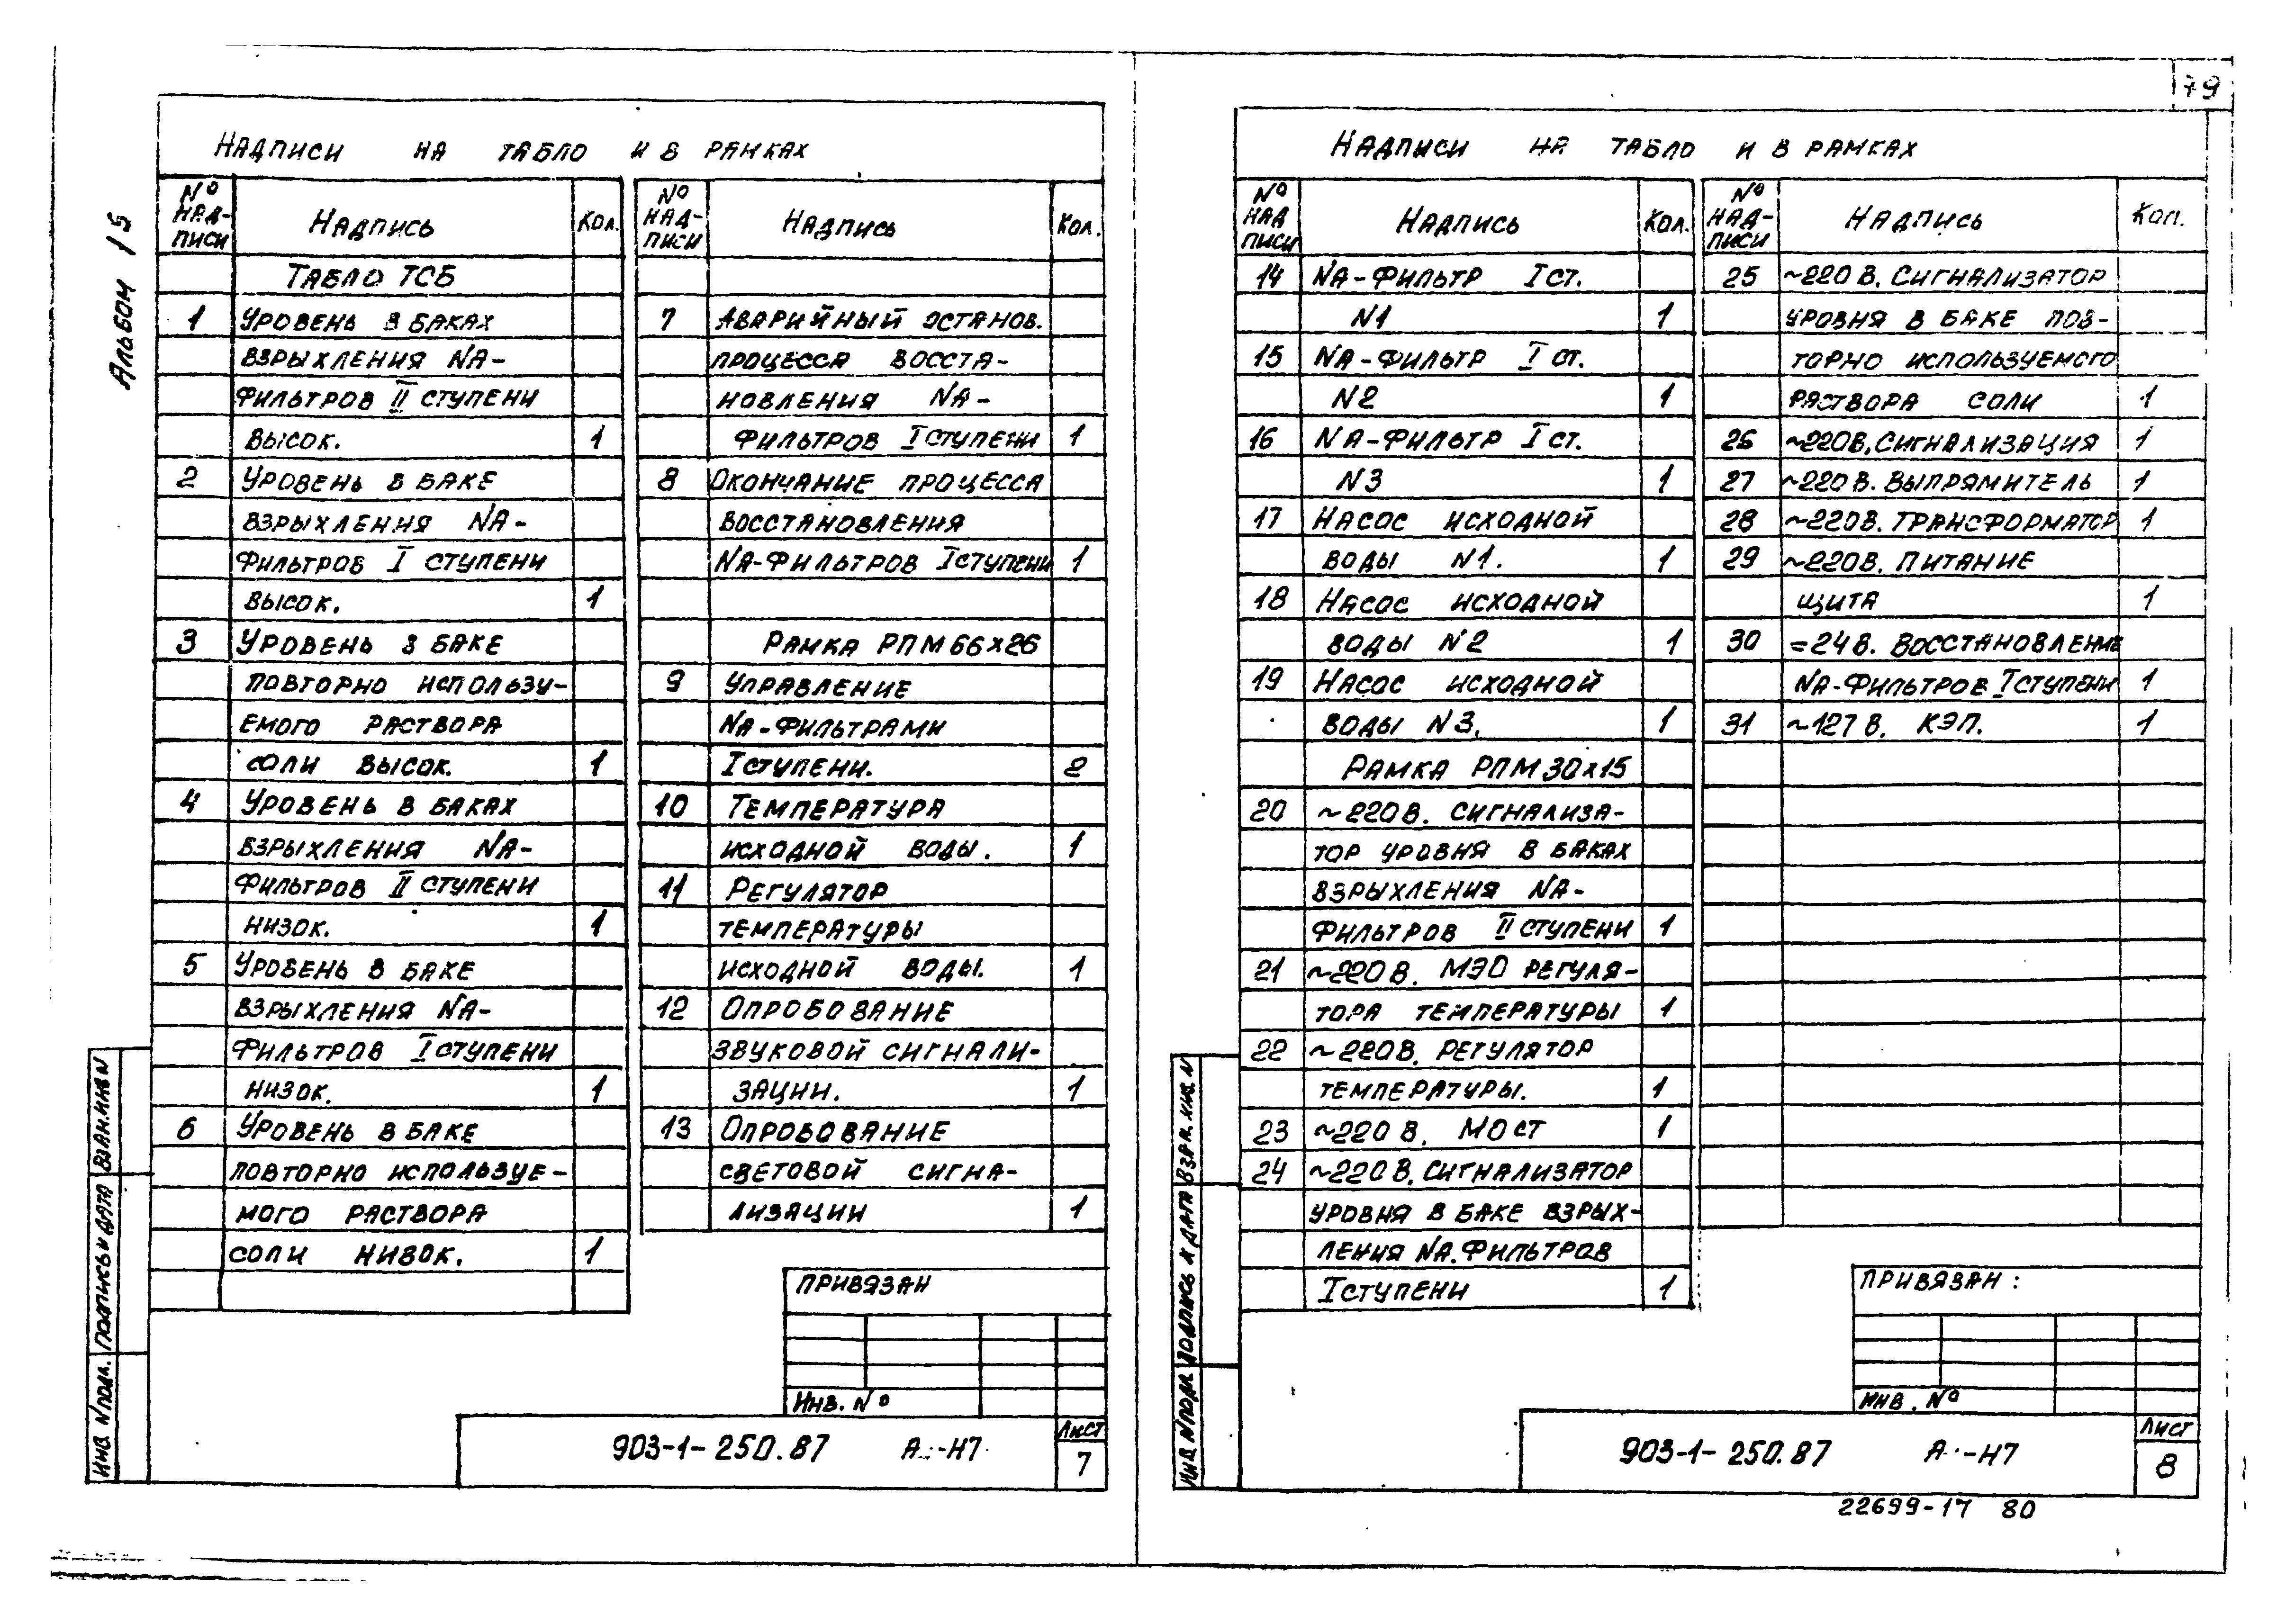 79
Альбом 15
Надписи на табло и в рамках
№ над-писи Надпись Кол.
Табло ТСБ
1 Уровень в баках
взрыхления Na-
фильтров II ступени
высок. 1
2 Уровень в баке
взрыхления Na-
фильтров I ступени
высок. 1
3 Уровень в баке
повторно использу-
емого раствора
соли высок. 1
4 Уровень в баках
взрыхления Na-
фильтров II ступени
низок. 1
5 Уровень в баке
взрыхления Na-
фильтров I ступени
низок. 1
6 Уровень в баке
повторно используе-
мого раствора
соли низок. 1
№ над-писи Надпись Кол.
7 Аварийный останов.
процесса восста-
новления Na-
фильтров I ступени 1
8 Окончание процесса
восстановления
Na-фильтров I ступени 1
Рамка РПМ 66х26
9 Управление
Na-фильтрами
I ступени. 2
10 Температура
исходной воды. 1
11 Регулятор
температуры
исходной воды. 1
12 Опробование
звуковой сигнали-
зации. 1
13 Опробование
световой сигна-
лизации 1
Привязан
Инв. №
903-1-250.87 А -Н7
Лист
7
Взам.инв N
Подпись и дата
Инв. N подл.
Надписи на табло и в рамках
№ над писи Надпись Кол.
14 Na-фильтр I ст.
N1 1
15 Na-фильтр I ст.
N2 1
16 Na-фильтр I ст.
N3 1
17 Насос исходной
воды N1. 1
18 Насос исходной
воды N2 1
19 Насос исходной
воды N3. 1
Рамка РПМ 30х15
20 ~220 В. Сигнализа-
тор уровня в баках
взрыхления Na-
фильтров II ступени 1
21 ~220 В. МЭО регуля-
тора температуры 1
22 ~220В. Регулятор
температуры. 1
23 ~220 В. Мост 1
24 ~220 В. Сигнализатор
уровня в баке взрых-
ления Na.фильтров
I ступени 1
№ над-писи Надпись Кол.
25 ~220 В. Сигнализатор
уровня в баке пов-
торно используемого
раствора соли 1
26 ~220В. Сигнализация 1
27 ~220 В. Выпрямитель 1
28 ~220В. Трансформатор 1
29 ~220В. Питание
щита 1
30 =24 В. Восстановление
Na-фильтров I ступени 1
31 ~127 В. КЭП. 1
Привязан :
Инв. №
903-1-250.87 А -Н7
Лист
8
Взам. инв. N
Подпись и дата
Инв. N подл.
22699-17 80